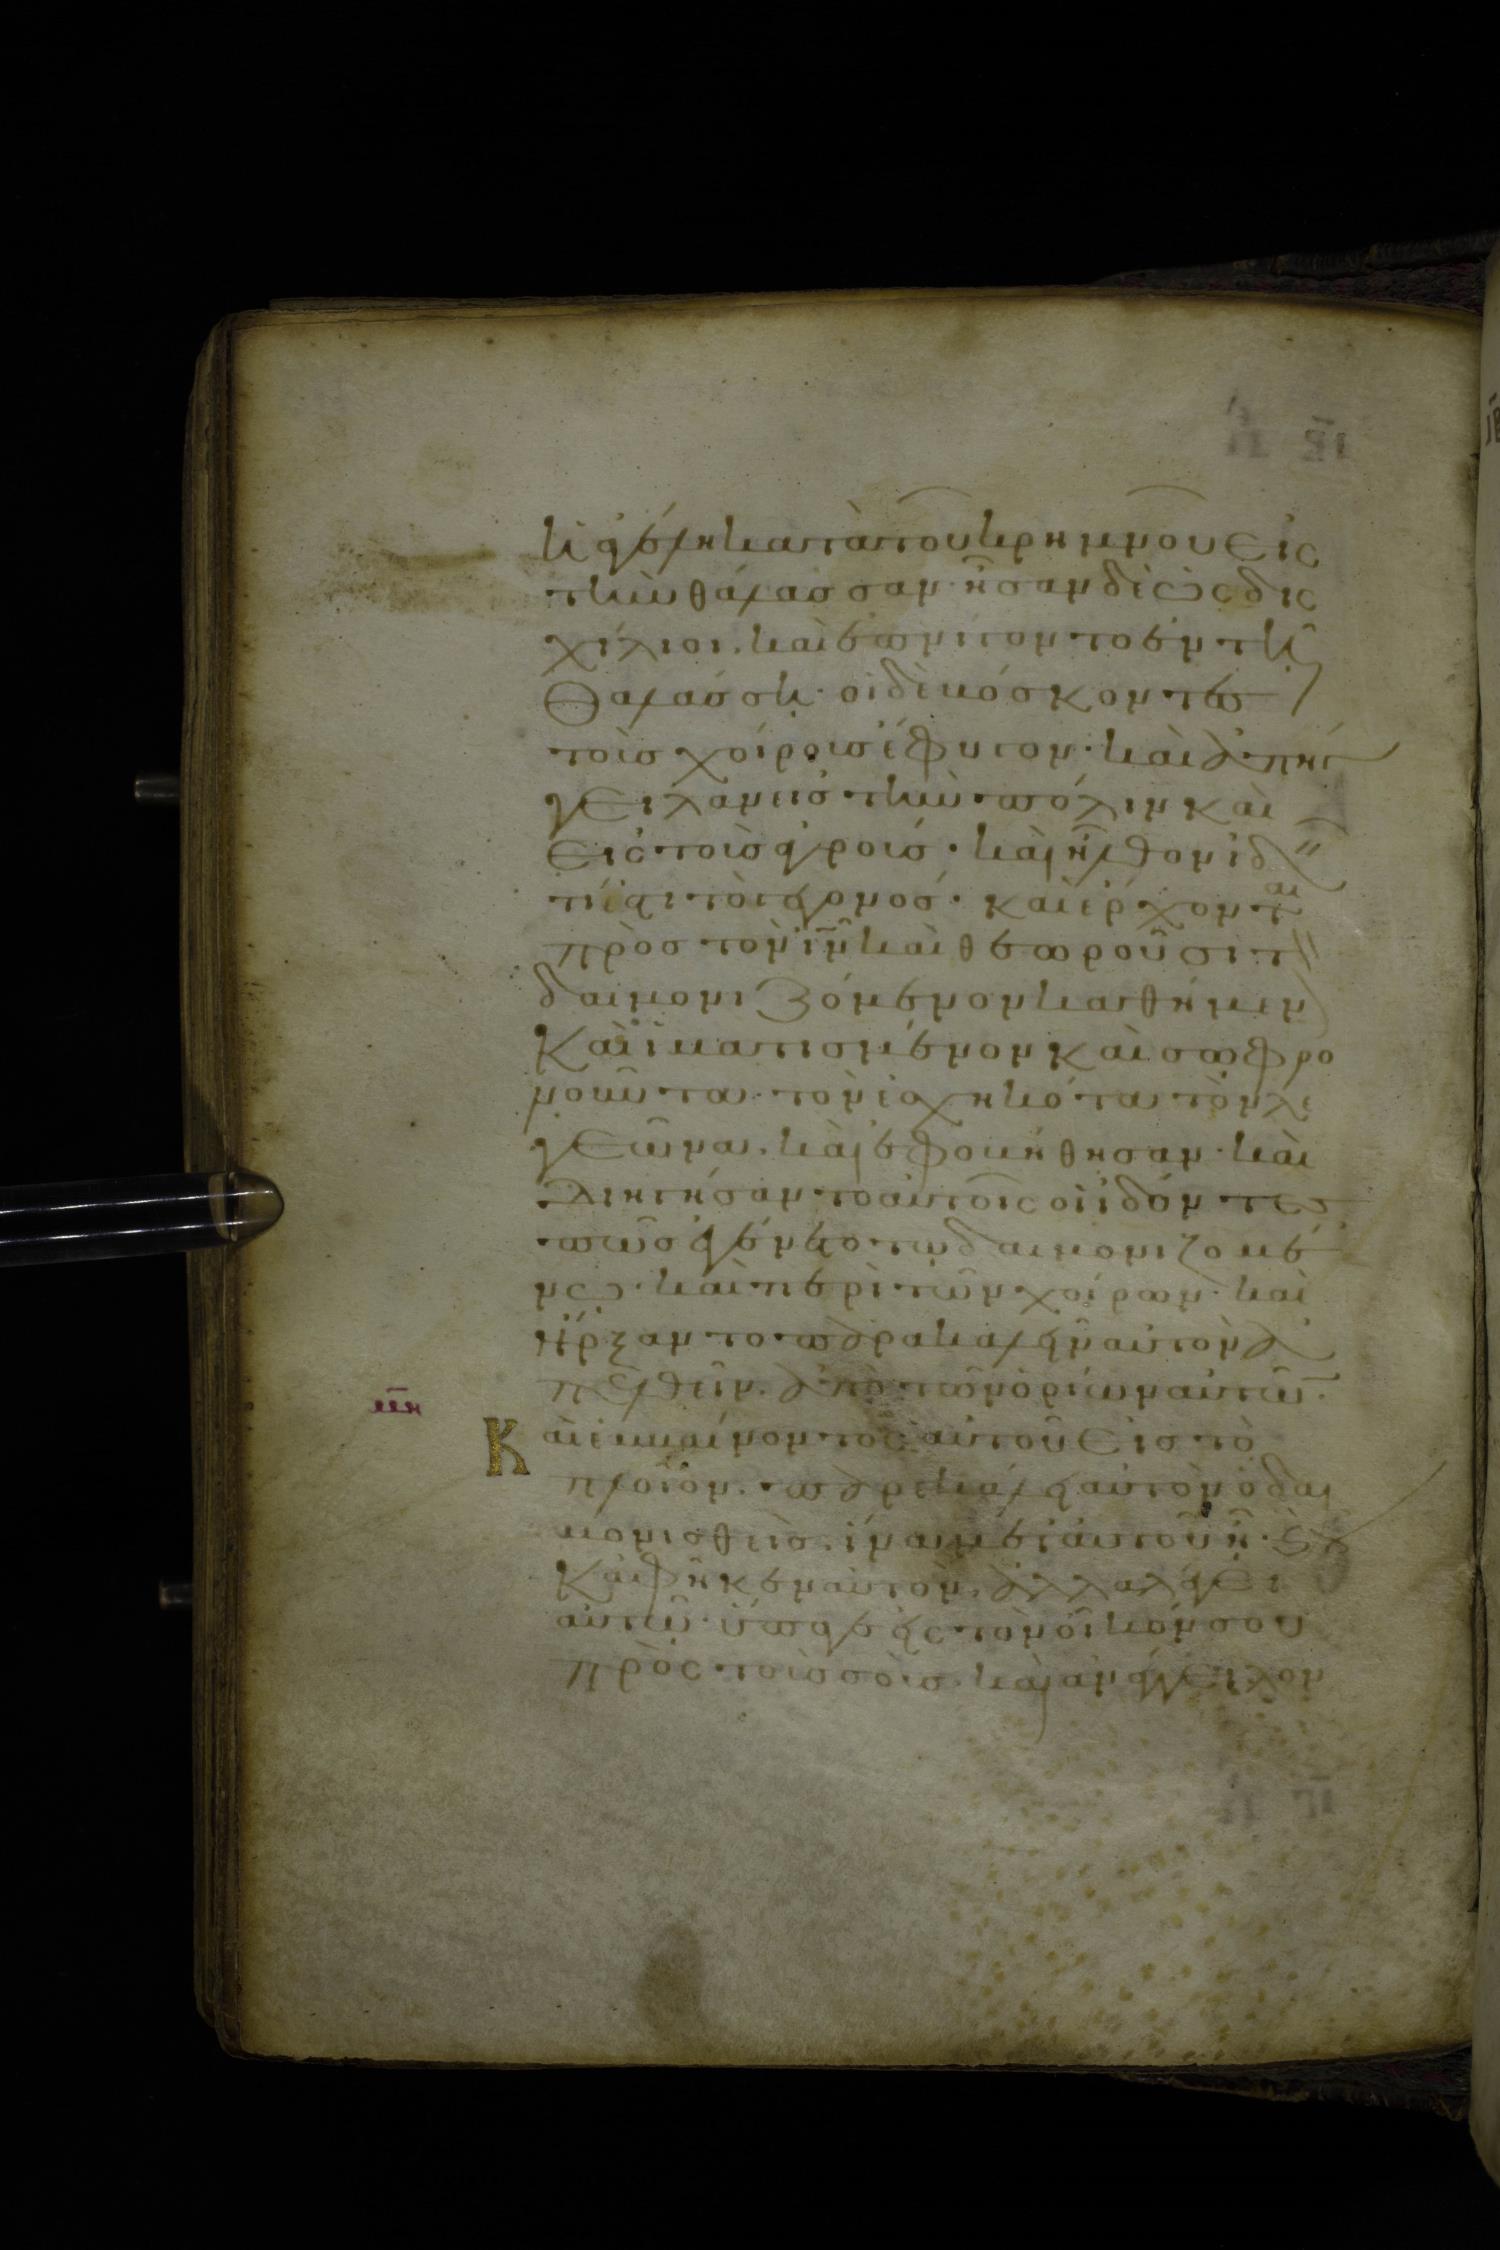 ἡ ἀγέλη κατὰ τοῦ κρημνοῦ εἰς
τὴν θάλασσαν· ἦσαν δὲ ὡς δις
χίλιοι. καὶ ἐπνίγοντο ἐν τῇ
θαλάσσῃ· οἱ δὲ βόσκοντες
τοὺς χοίρους ἔφυγον· καὶ ἀπήγ
γειλαν εἰς τὴν πόλιν καὶ
εἰς τοὺς ἀγρούς· καὶ ἦλθον ἰδεῖν
τί ἐστι τὸ γεγονός· καὶ ἔρχονται
πρὸς τὸν ιν̅ καὶ θεωροῦσι τὸν
δαιμονιζόμενον καθήμενον
καὶ ἱματισμένον καὶ σωφρο
νοῦντα· τὸν ἐσχηκότα τὸν λε
γεῶνα. καὶ ἐφοβήθησαν· καὶ
διηγήσαντο αὐτοῖς οἱ ἰδόντες
πῶς ἐγένετο τῷ δαιμονιζομέ
νῳ· καὶ περὶ τῶν χοίρων· καὶ
ἤρξαντο παρακαλεῖν αὐτὸν ἀ
πελθεῖν ἀπὸ τῶν ὁρίων αὐτῶν·
Καὶ ἐμβαίνοντος αὐτοῦ εἰς τὸ
πλοῖον· παρεκάλει αὐτὸν ὁ δαι
μονισθεὶς. ἵνα μετ αὐτοῦ ᾖ·
κ ἀφῆκεν αὐτὸν, ἀλλὰ λέγει
αὐτῷ· ὕπαγε εἰς τὸν οἶκόν σου
πρὸς τοὺς σοὺς. καὶ ἀνάγγειλον